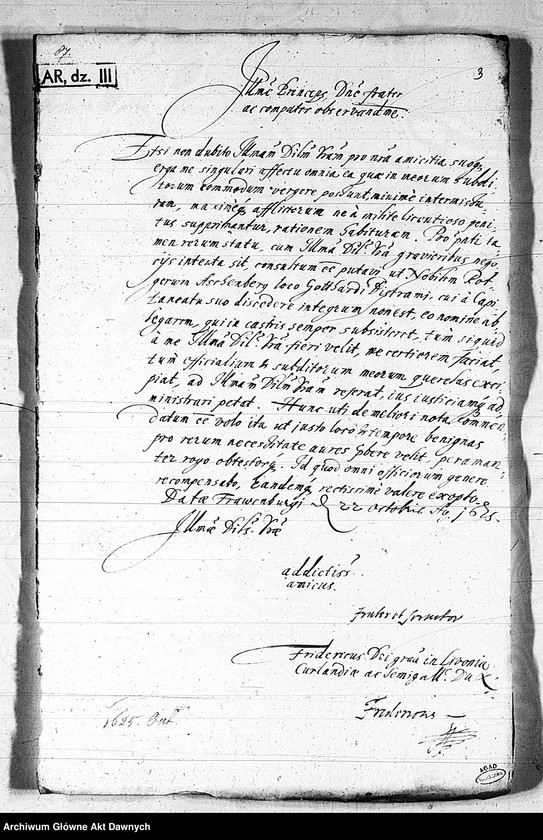 87
AR, dz. III
3
Illme Princeps Dne frater
ac compater observandme.
Etsi non dubito Illmam Diltm Vram pro nra amicitia, suoq.
erga me singulari affectu omnia ea quæ in meorum subdi-
torum commodum vergere possunt, minimè intermissu-
ram, maximéq afflictorum ne à milite licentioso peni-
tus supprimantur, rationem habituram. Pro pnti ta-
men rerum statu, cum Illma Diltio Vra gravioribus nego-
cijs intenta sit, consultum eē putavi ut Nobilem Rot-
gerum Aschenberg loco Gottsardi Bistrami, cui à Capi-
taneatu suo discedere integrum non est, eo nomine ab-
legarem, qui in castris semper subsisteret, tùm siquid
à me Illma Diltio Vra fieri velit, me certiorem faciat,
tùm officialium & subditorum meorum querelas exci-
piat, ad Illmam Diltm Vram referat, ius iustitiamq ad-
ministrari petat. Hunc uti de meliori nota commen-
datum eē volo ita ut justo loco & tempore benignas
pro rerum necessitate aures pbere velit peraman-
ter rogo obtestorq. Id quod omni officiorum genere
recompensabo, Eandemq rectissimè valere exopto.
Datæ Frawenburgi 22 octobris Ao 1625.
Illmæ Diltis Vræ
addictiss.
amicus.
frater et servitor
Fridericus Dei gratia in Livonia
Curlandiæ ac Semigalliæ Dux
Fridericus
1625. Oct
AGAD
Archiwum Główne Akt Dawnych